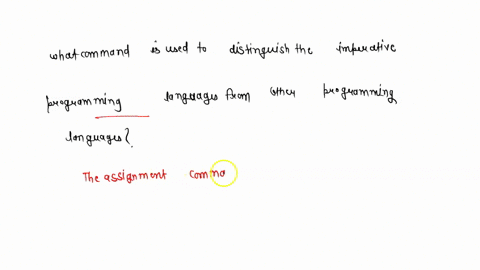 what command is used to distinguish the imperative
programming languages from other programming
languages?
The assignment comma